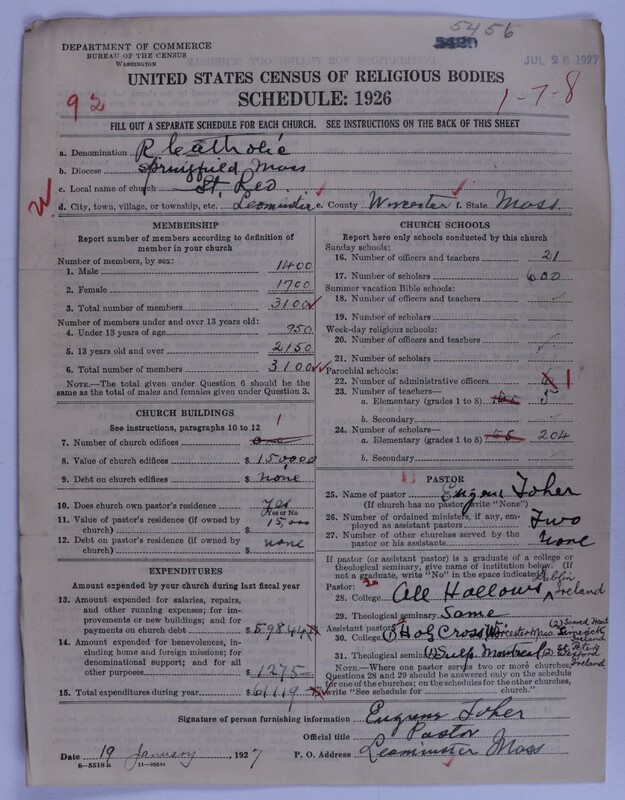 5456
5420
JUL 26 1927
DEPARTMENT OF COMMERCE
BUREAU OF THE CENSUS
WASHINGTON
UNITED STATES CENSUS OF RELIGIOUS BODIES
SCHEDULE: 1926
92
1-7-8
FILL OUT A SEPARATE SCHEDULE FOR EACH CHURCH. SEE INSTRUCTIONS ON THE BACK OF THIS SHEET
a. Denomination R Catholic
b. Diocese Springfield Mass
c. Local name of church St. Leo
d. City, town, village, or township, etc. Leominster e. County Worcester f. State Mass.
MEMBERSHIP
Report number of members according to definition of
member in your church
Number of members, by sex:
1. Male 1400
2. Female 1700
3. Total number of members 3100
Number of members under and over 13 years old:
4. Under 13 years of age 950
5. 13 years old and over 2150
6. Total number of members 3100
NOTE.—The total given under Question 6 should be the
same as the total of males and females given under Question 3.
CHURCH BUILDINGS
See instructions, paragraphs 10 to 12
1
7. Number of church edifices one
8. Value of church edifices $ 150,000
9. Debt on church edifices $ none
10. Does church own pastor's residence? Yes
Yes or No
11. Value of pastor's residence (if owned by
church) $ 15,000
12. Debt on pastor's residence (if owned by
church) $ none
EXPENDITURES
Amount expended by your church during last fiscal year
13. Amount expended for salaries, repairs,
and other running expenses; for im-
provements or new buildings; and for
payments on church debt $ 59844
14. Amount expended for benevolences, in-
cluding home and foreign missions; for
denominational support; and for all
other purposes $ 1275
15. Total expenditures during year $ 61119
CHURCH SCHOOLS
Report here only schools conducted by this church
Sunday schools:
16. Number of officers and teachers 21
17. Number of scholars 600
Summer vacation Bible schools:
18. Number of officers and teachers
19. Number of scholars
Week-day religious schools:
20. Number of officers and teachers
21. Number of scholars
Parochial schools:
22. Number of administrative officers 1
23. Number of teachers—
a. Elementary (grades 1 to 8) 5
b. Secondary
24. Number of scholars—
a. Elementary (grades 1 to 8) 204
b. Secondary
PASTOR
25. Name of pastor Eugene Toher
(If church has no pastor, write "None")
26. Number of ordained ministers, if any, em-
ployed as assistant pastors Two
27. Number of other churches served by the
pastor or his assistants None
If pastor (or assistant pastor) is a graduate of a college or
theological seminary, give name of institution below. (If
not a graduate, write "No" in the space indicated)
Pastor: Dublin
28. College All Hallows Ireland
29. Theological seminary Same
Assistant pastor: (2) Sacred Heart
30. College (1) Holy Cross Worcester Mass. Limerick
Ireland
31. Theological seminary (1) Sulp. Montreal (2) St Peter
Ireland
NOTE.—Where one pastor serves two or more churches,
Questions 28 and 29 should be answered only on the schedule
for one of the churches; on the schedules for the other churches,
write "See schedule for church."
Signature of person furnishing information Eugene Toher
Official title Pastor
Date 19 January 1927 P. O. Address Leominster Mass
8—5518a 11—9554a